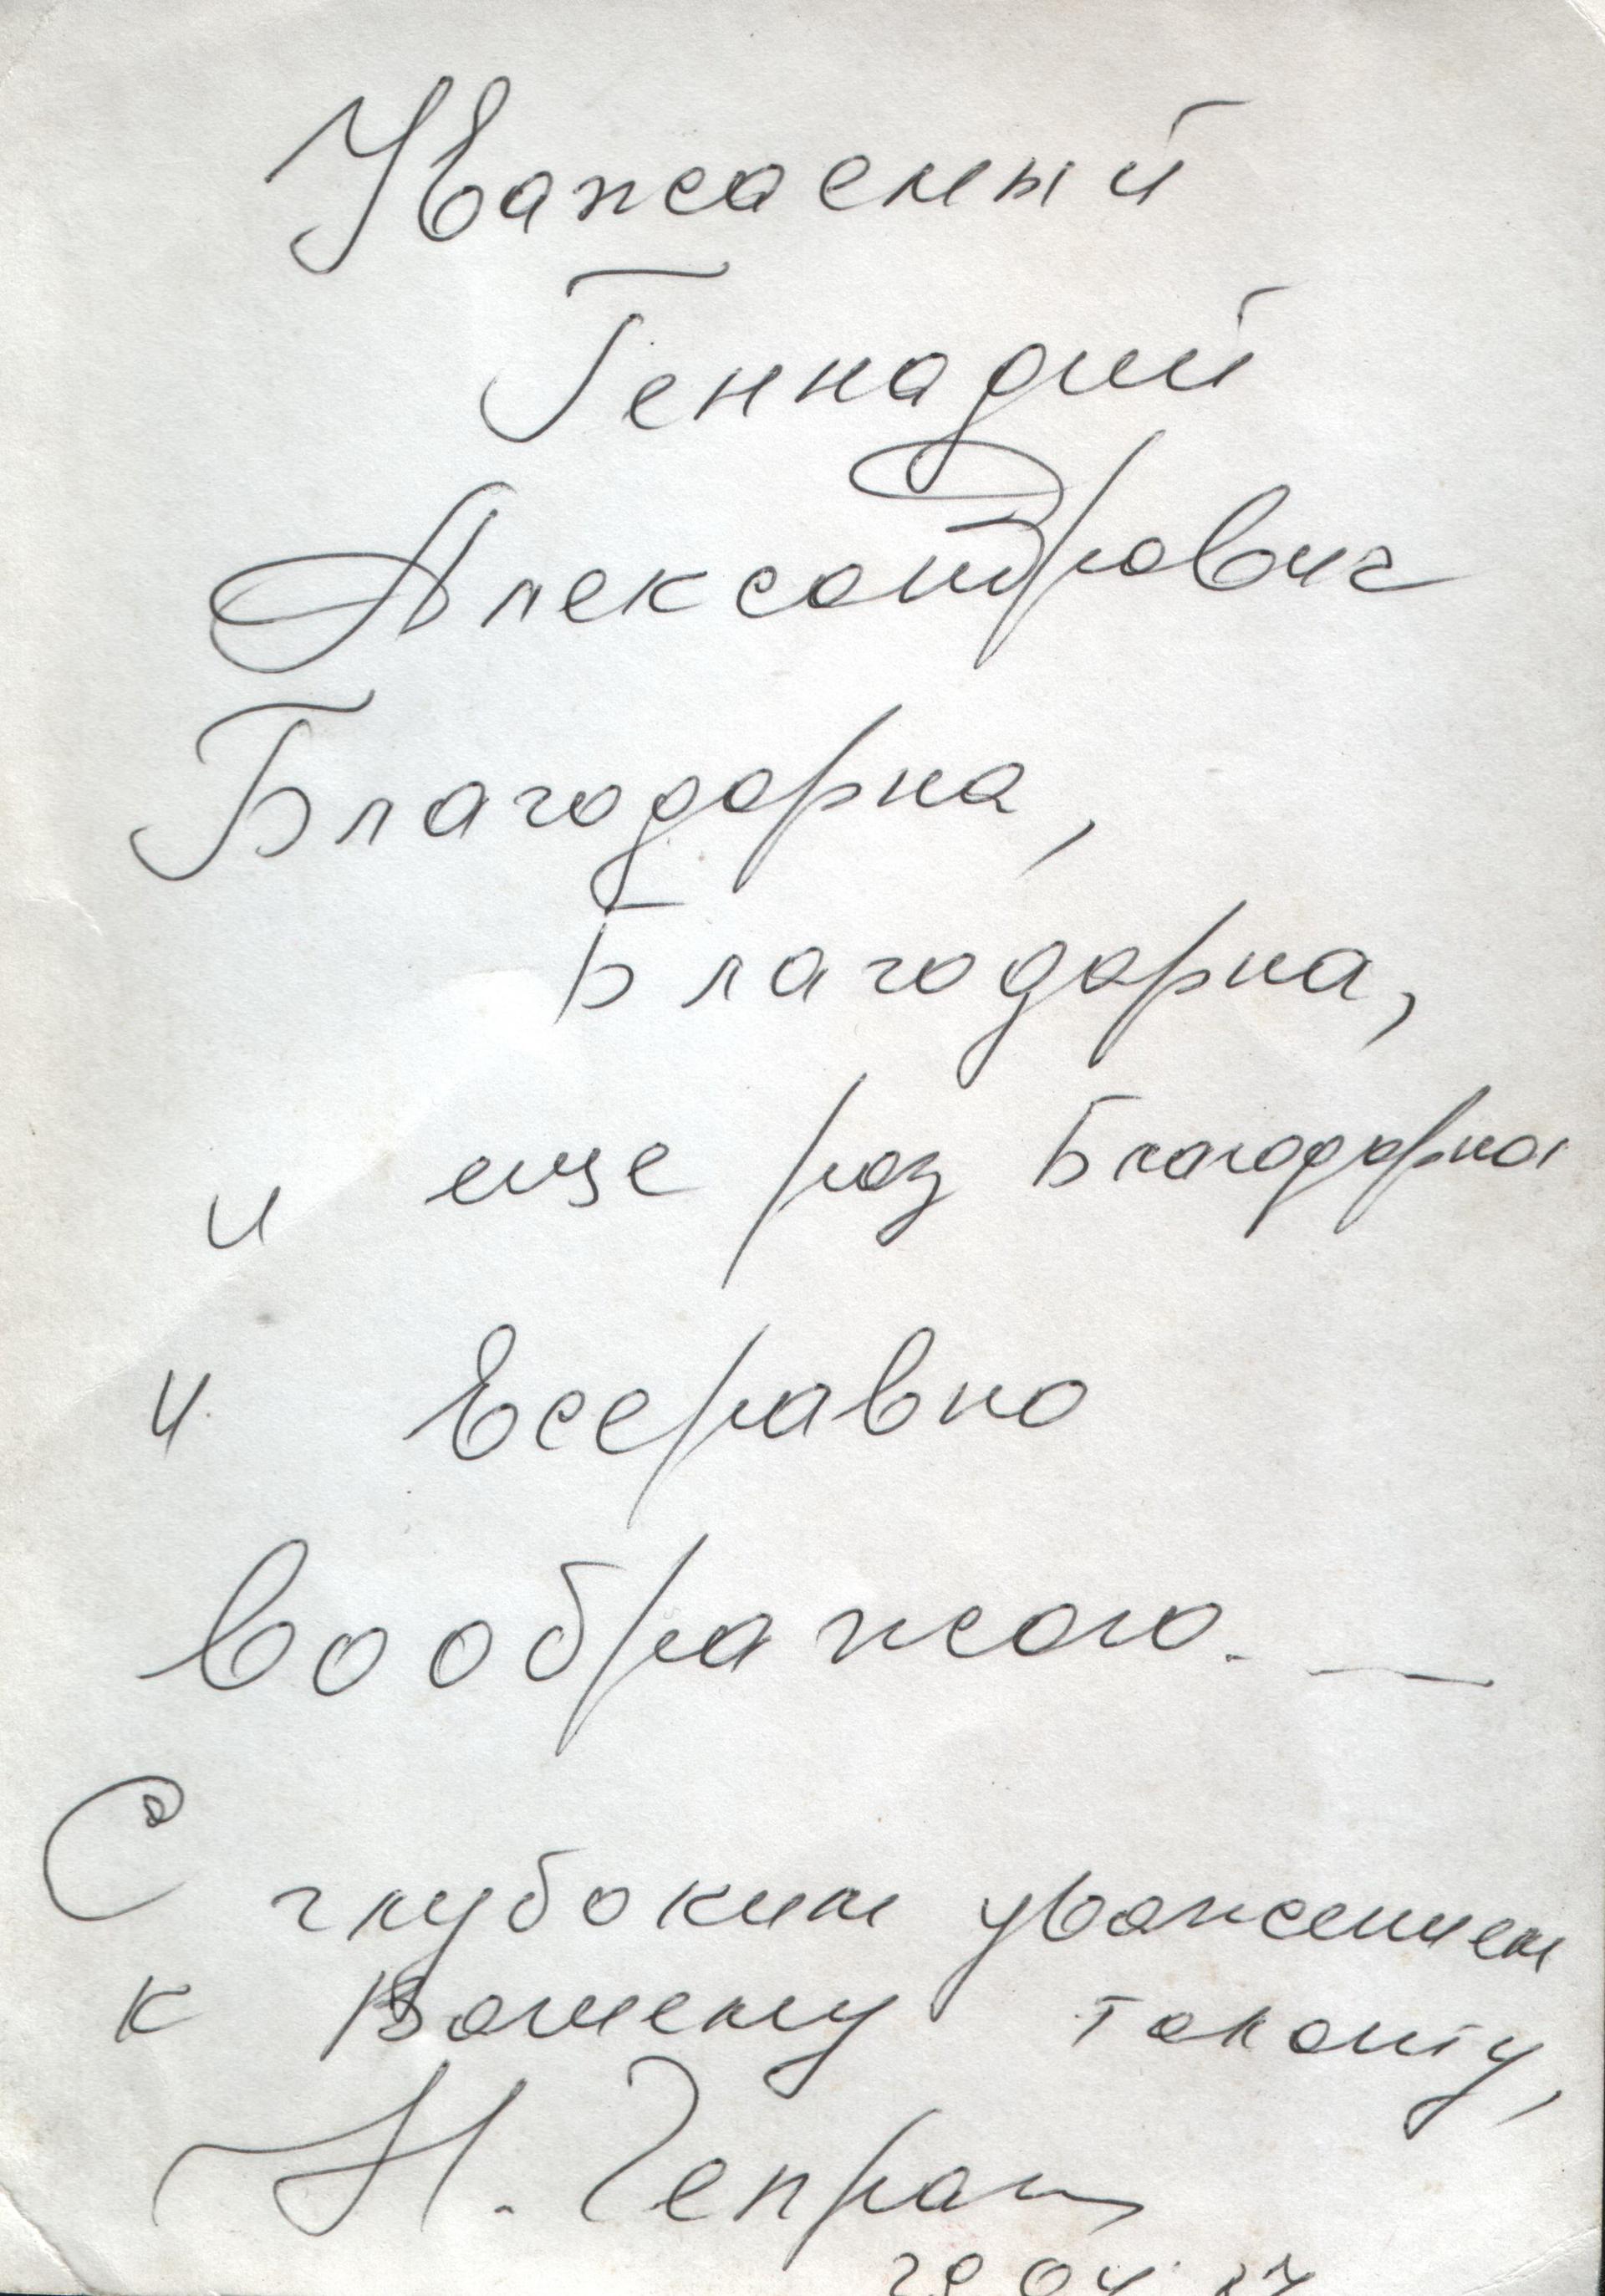 Уважаемый
Геннадий
Александрович
Благодарна,
Благодарна,
и еще раз Благодарна
и всеравно
воображаю. —
С глубоким уважением
к Вашему таланту,
Н. Чепрага